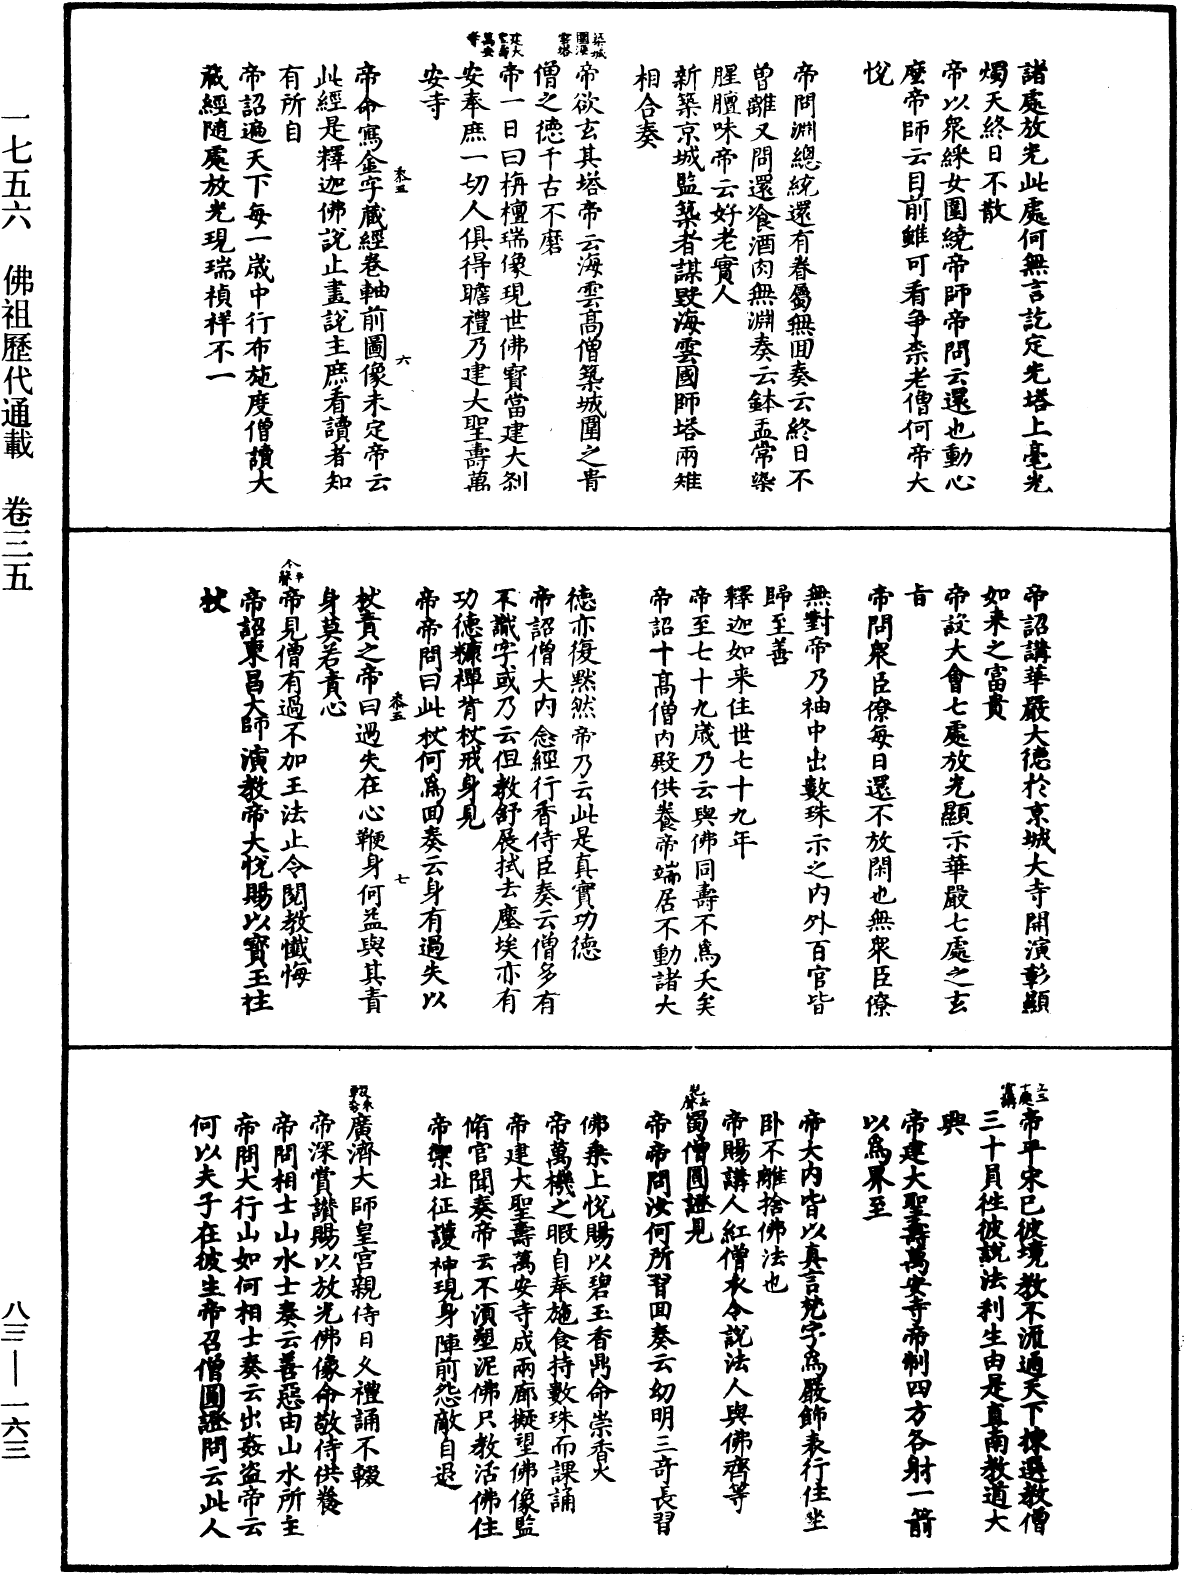 諸處放光此處何無言訖定光塔上毫光
燭天終日不散
帝以衆綵女圍繞帝師帝問云還也動心
麼帝師云目前雖可看爭柰老僧何帝大
悅
帝問淵總統還有眷屬無回奏云終日不
曾離又問還飡酒肉無淵奏云鉢盂常染
腥膻味帝云好老實人
新築京城監築者謀毀海雲國師塔兩雉
相合奏
帝欲去其塔帝云海雲高僧築城圍之貴
僧之德千古不磨
帝一日曰栴檀瑞像現世佛寶當建大刹
安奉庶一切人俱得瞻禮乃建大聖壽萬
安寺
帝命寫金字藏經卷軸前圖像未定帝云
此經是釋迦佛說止畫說主庶看讀者知
有所自
帝詔遍天下每一歲中行布施度僧讀大
藏經隨處放光現瑞禎祥不一
帝詔講華嚴大德於京城大寺開演彰顯
如来之富貴
帝設大會七處放光顯示華嚴七處之玄
旨
帝問衆臣僚每日還不放閑也無衆臣僚
無對帝乃袖中出數珠示之内外百官皆
歸至善
釋迦如来住世七十九年
帝至七十九歲乃云與佛同壽不爲夭矣
帝詔十高僧内殿供養帝端居不動諸大
德亦復默然帝乃云此是真實功德
帝詔僧大内念經行香侍臣奏云僧多有
不識字或乃云但教舒展拭去塵埃亦有
功德糠禪背杖戒身見
帝帝問曰此杖何爲回奏云身有過失以
杖責之帝曰過失在心鞭身何益與其責
身莫若責心
帝見僧有過不加王法止令閱教懺悔
帝詔東昌大師演教帝大悅賜以寶玉柱
杖
帝平宋已彼境教不流通天下揀選教僧
三十員往彼說法利生由是直南教道大
興
帝建大聖壽萬安寺帝制四方各射一箭
以爲界至
帝大内皆以真言梵字爲嚴飾表行住坐
卧不離捨佛法也
帝賜講人紅僧衣令說法人與佛齊等
蜀僧圓證見
帝帝問汝何所習回奏云幼明三奇長習
佛乘上悅賜以碧玉香鼎命崇香火
帝萬機之暇自奉施食持數珠而課誦
帝建大聖壽萬安寺成兩廊擬塑佛像監
脩官聞奏帝云不須塑泥佛只教活佛住
帝禦北征護神現身陣前怨敵自退
廣濟大師皇宮親侍日久禮誦不輟
帝深賞讚賜以放光佛像命敬侍供養
帝問相士山水士奏云善惡由山水所主
帝問大行山如何相士奏云出姦盜帝云
何以夫子在彼生帝召僧圓證問云此人
一七五六　佛祖歷代通載　卷三五
八三—一六三